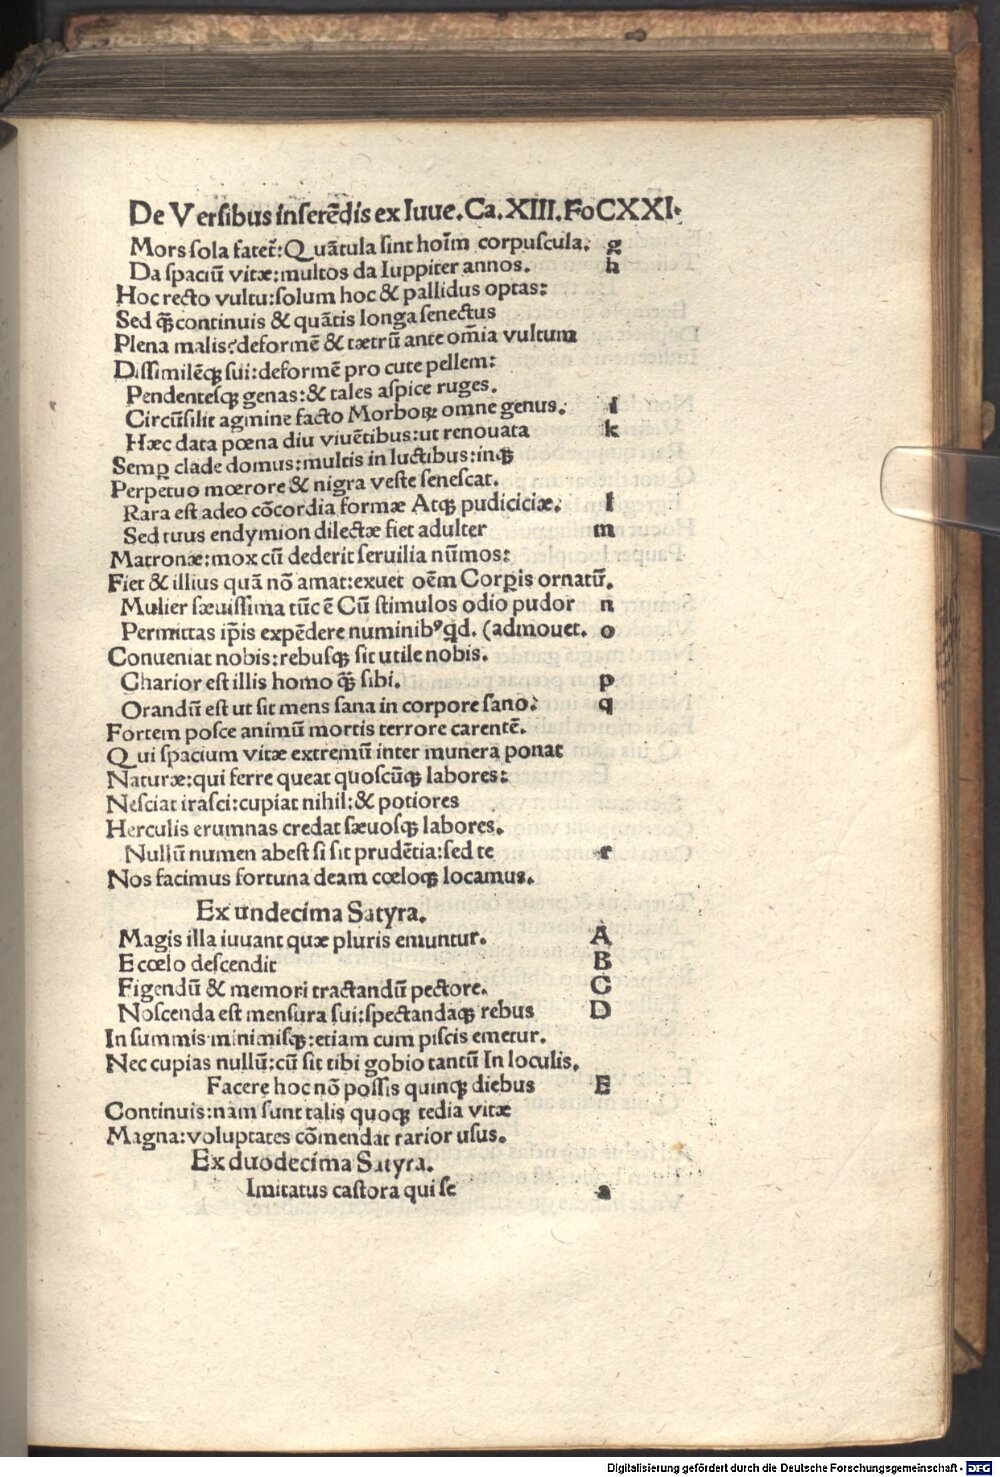 De Versibus inserēdis ex Iuue. Ca. XIII. Fo CXXI.
Mors sola fatet᷑: Quātula sint hoīm corpuscula. g
Da spaciū vitæ: multos da Iuppiter annos. h
Hoc recto vultu: solum hoc & pallidus optas:
Sed ꝙ̄ continuis & quātis longa senectus
Plena malis? deformē & tætrū ante om̄ia vultum
Dissimilēqꝫ sui: deformē pro cute pellem:
Pendentesqꝫ genas: & tales aspice ruges.
Circūsilit agmine facto Morboꝝ omne genus. i
Hæc data pœna diu viuētibus: ut renouata k
Semꝑ clade domus: multis in luctibus: inqꝫ
Perpetuo mœrore & nigra veste senescat.
Rara est adeo cōcordia formæ Atqꝫ pudiciciæ. l
Sed tuus endymion dilectæ fiet adulter m
Matronæ: mox cū dederit seruilia nūmos:
Fiet & illius quā nō amat: exuet oēm Corꝑis ornatū.
Mulier sæuissima tūc ē Cū stimulos odio pudor n
Permittas ip̄is expēdere numinibꝰ qd. (admouet. o
Conueniat nobis: rebusqꝫ sit utile nobis.
Charior est illis homo ꝙ̄ sibi. p
Orandū est ut sit mens sana in corpore sano: q
Fortem posce animū mortis terrore carentē.
Qui spacium vitæ extremū inter munera ponat
Naturæ: qui ferre queat quoscūqꝫ labores:
Nesciat irasci: cupiat nihil: & potiores
Herculis erumnas credat sæuosqꝫ labores.
Nullū numen abest si sit prudētia: sed te r
Nos facimus fortuna deam cœloqꝫ locamus.
Ex undecima Satyra.
Magis illa iuuant quæ pluris emuntur. A
E cœlo descendit B
Figendū & memori tractandū pectore. C
Noscenda est mensura sui: spectandaqꝫ rebus D
In summis minimisqꝫ: etiam cum piscis emetur.
Nec cupias nullū: cū sit tibi gobio tantū In loculis.
Facere hoc nō possis quinqꝫ diebus E
Continuis: nam sunt talis quoqꝫ tedia vitæ
Magna: voluptates cōmendat rarior usus.
Ex duodecima Satyra.
Imitatus castora qui se a
Digitalisierung gefördert durch die Deutsche Forschungsgemeinschaft - DFG